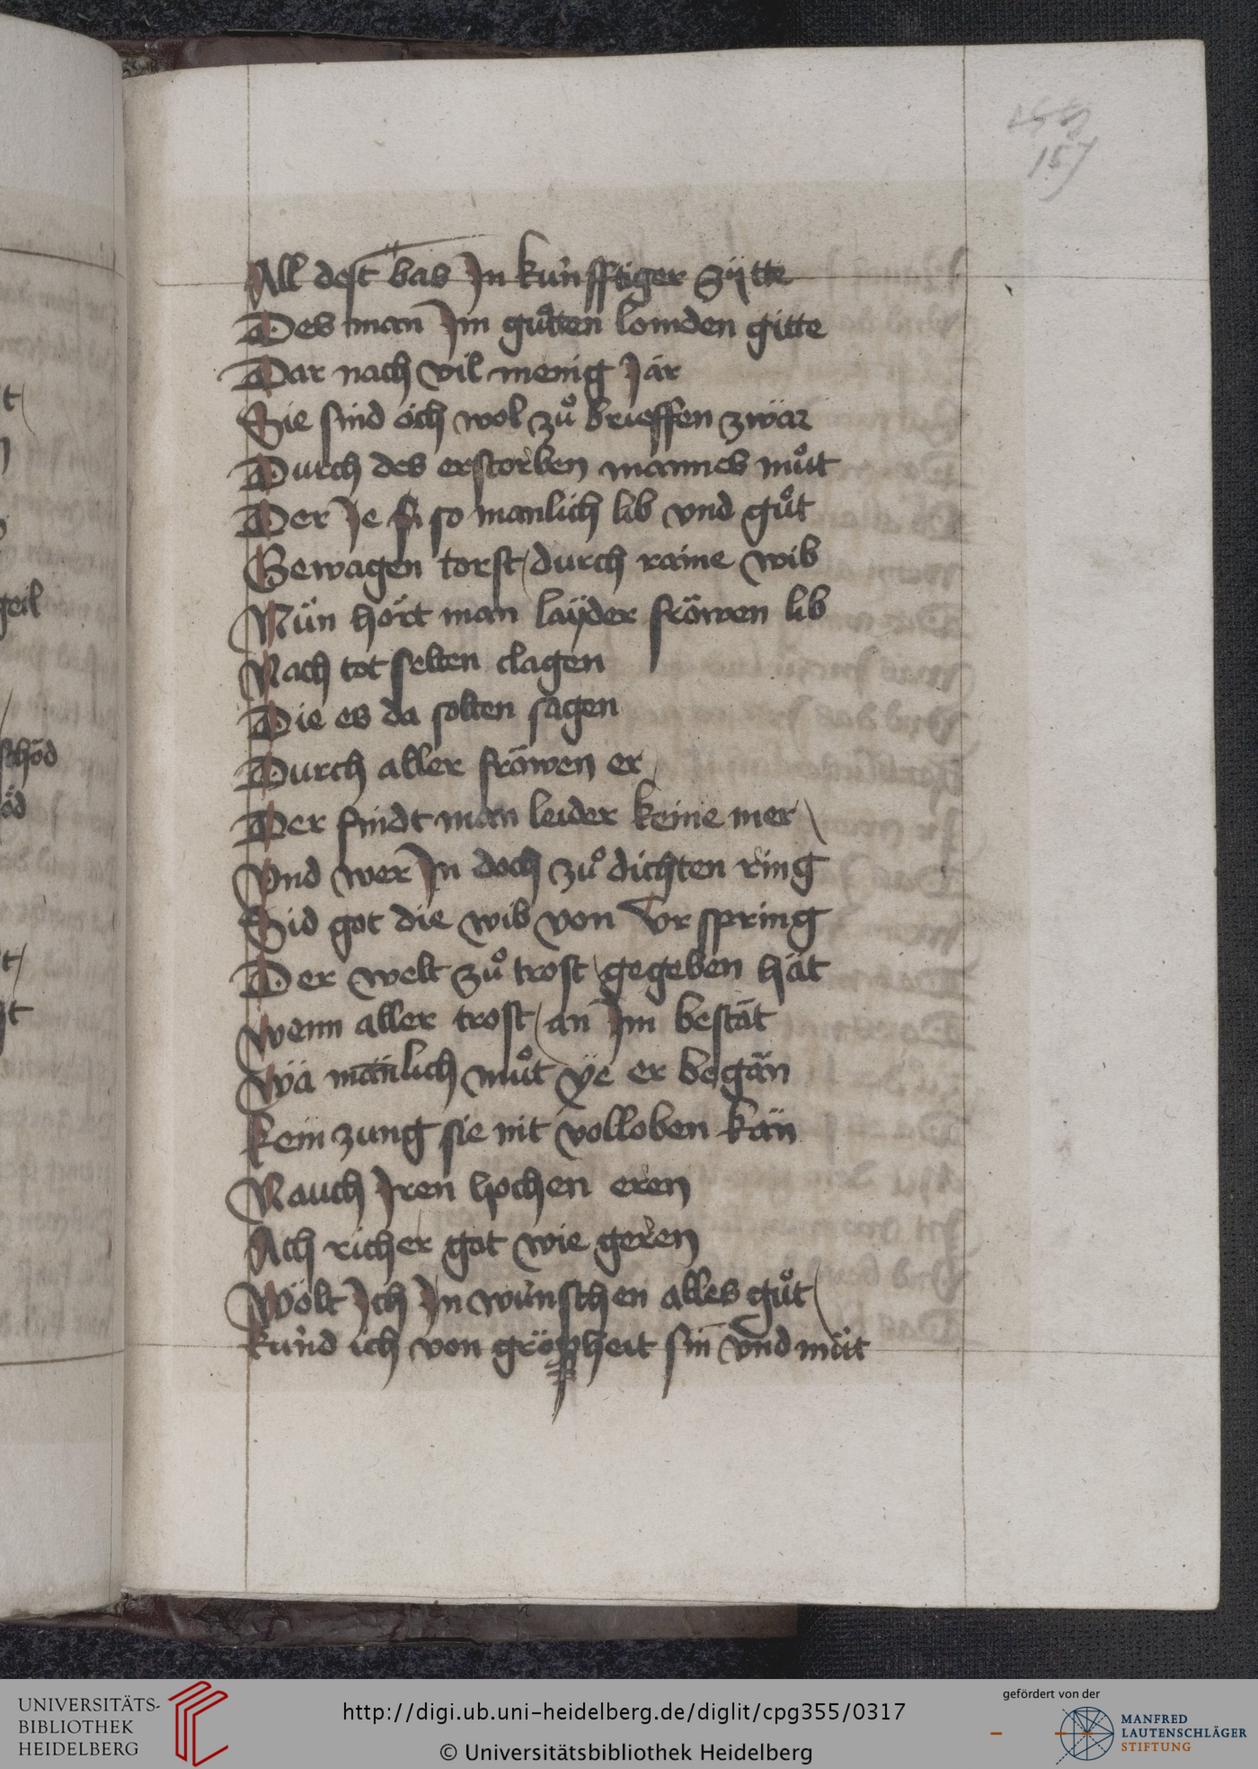 157
All dest bas In kúnfftiger zÿtte
Des man Im gůtten lomden gitte
Dar nach vil menig Jär
Sie sind öch wol zů brieffen zwär
Durch des erstorben mannes můt
Der Je so manlich lib vnd gůt
Gewagen torst / durch raine wib
Nün hört man laÿder fröwen lib
Nach tot selten clagen
Die es da solten sagen
Durch aller fröwen er
Der findt man leider keine mer
Vnd wer In doch zů dichten ring
Sid got die wib von Vr spring
Der welt zů trost gegeben hät
wenn aller trost / an Im bestät
Wä mänlich můt ÿe er begän
kein zung sie nit volloben kän
Nauch Iren hochen eren
Ach richer got wie geren
Wölt Ich In wúnschen alles gůt
kúnd ich von gröpheit sin vnd můt
geil
schöd
öd
UNIVERSITÄTS-
BIBLIOTHEK
HEIDELBERG
http://digi.ub.uni-heidelberg.de/diglit/cpg355/0317
© Universitätsbibliothek Heidelberg
gefördert von der
MANFRED
LAUTENSCHLÄGER
STIFTUNG